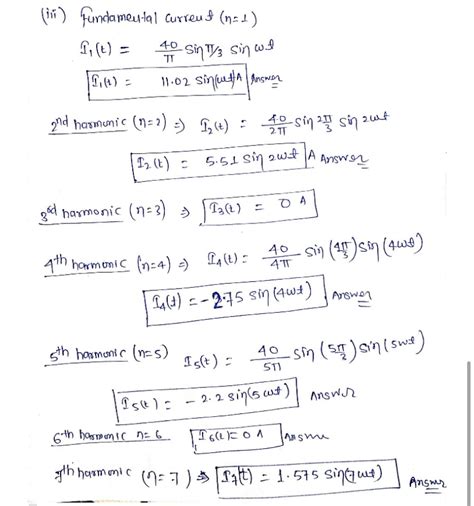 (iii) fundamental current (n=1)
I₁(t) = 40/π Sin π/3 sin ωt
I₁(t) = 11.02 Sin(ωt)A Answer
2nd harmonic (n=2) ⇒ I₂(t) = 40/2π sin 2π/3 sin 2ωt
I₂(t) = 5.51 Sin 2ωt A Answer
3rd harmonic (n=3) ⇒ I₃(t) = 0 A
4th harmonic (n=4) ⇒ I₄(t) = 40/4π sin (4π/3) sin (4ωt)
I₄(t) = -2.75 sin(4ωt) Answer
5th harmonic (n=5) I₅(t) = 40/5π sin (5π/3) sin (5ωt)
I₅(t) = -2.2 sin(5ωt) Answer
6th harmonic n=6 I₆(t)=0 A Answer
7th harmonic (n=7) ⇒ I₇(t) = 1.575 sin(7ωt) Answer